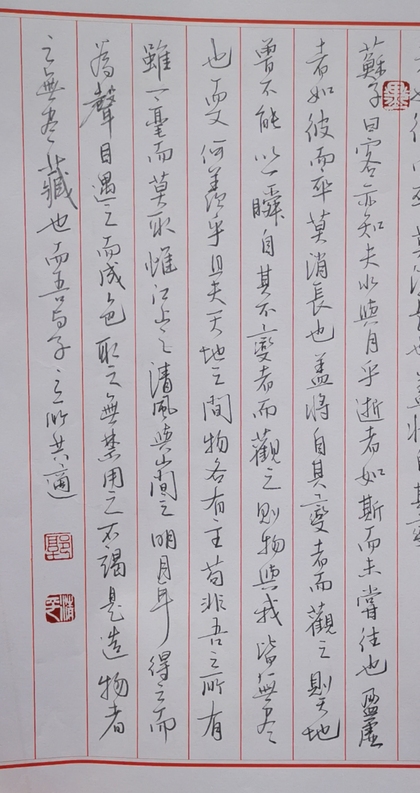 蘇子曰客亦知夫水與月乎逝者如斯而未嘗往也盈虛
者如彼而卒莫消長也蓋將自其變者而觀之則天地
曾不能以一瞬自其不變者而觀之則物與我皆無盡
也而又何羨乎且夫天地之間物各有主苟非吾之所有
雖一毫而莫取惟江上之清風與山間之明月耳得之而
為聲目遇之而成色取之無禁用之不竭是造物者
之無盡藏也而吾与子之所共適